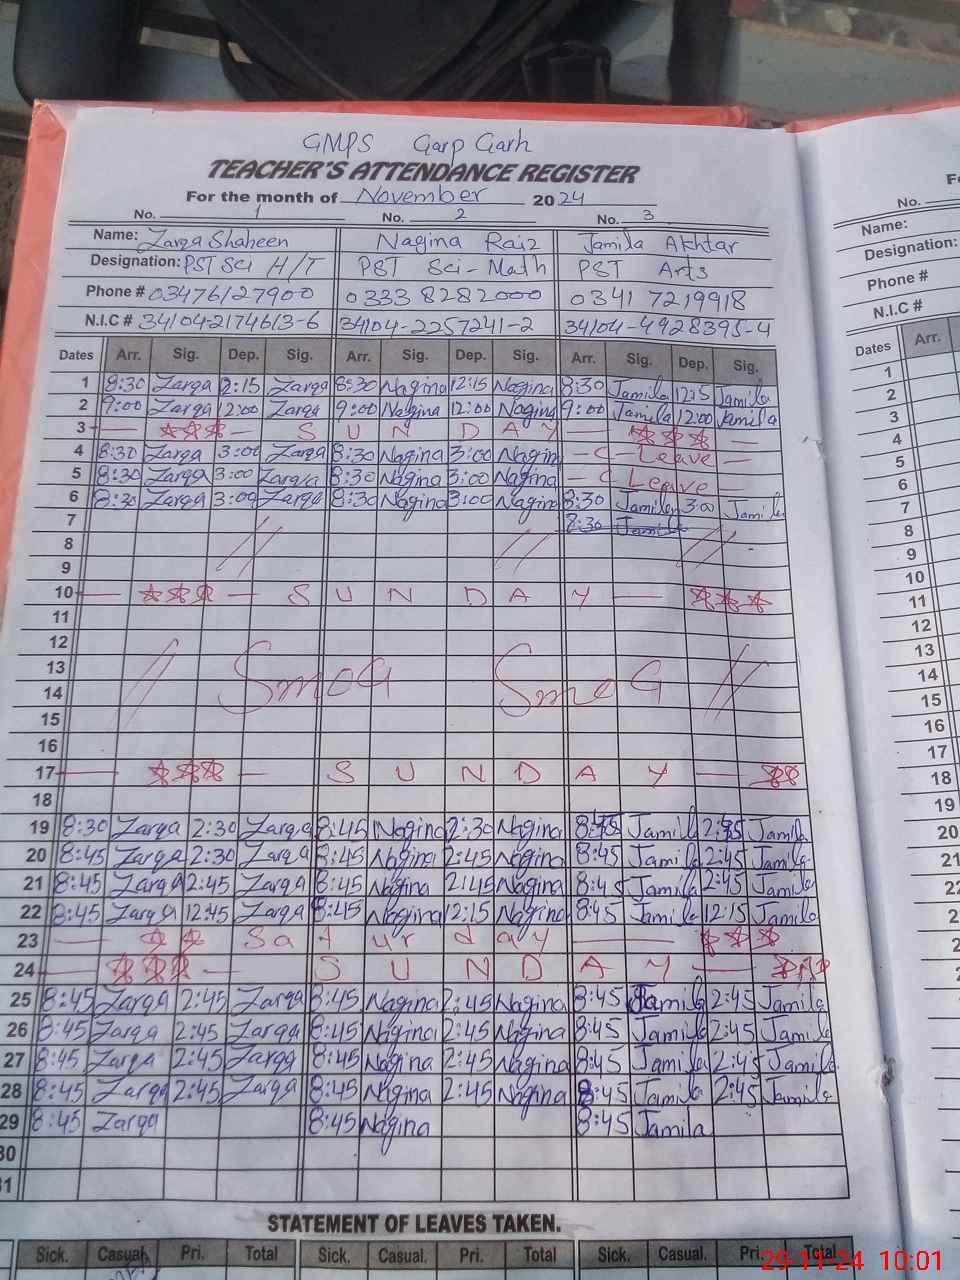 GMPS Garp Garh
TEACHER'S ATTENDANCE REGISTER
For the month of November 2024
No. 1 No. 2 No. 3
Name: Zarqa Shaheen Nagina Raiz Jamila Akhtar
Designation: PST Sci H/T PST Sci-Math PST Arts
Phone # 03476127900 0333 8282000 0341 7219918
N.I.C # 34104-2174613-6 34104-2257241-2 34104-4928395-4
Dates Arr. Sig. Dep. Sig. Arr. Sig. Dep. Sig. Arr. Sig. Dep. Sig.
1 8:30 Zarqa 12:15 Zarqa 8:30 Nagina 12:15 Nagina 8:30 Jamila 12:15 Jamila
2 9:00 Zarqa 12:00 Zarqa 9:00 Nagina 12:00 Nagina 9:00 Jamila 12:00 Jamila
3 SUNDAY
4 8:30 Zarqa 3:00 Zarqa 8:30 Nagina 3:00 Nagina C-Leave
5 8:30 Zarqa 3:00 Zarqa 8:30 Nagina 3:00 Nagina C Leave
6 8:30 Zarqa 3:00 Zarqa 8:30 Nagina 3:00 Nagina 8:30 Jamila 3:00 Jamila
7 8:30 Jamila
8
9
10 SUNDAY
11
12
13 SmoG SmoG
14
15
16
17 SUNDAY
18
19 8:30 Zarqa 2:30 Zarqa 8:45 Nagina 2:30 Nagina 8:45 Jamila 2:45 Jamila
20 8:45 Zarqa 2:30 Zarqa 8:45 Nagina 2:45 Nagina 8:45 Jamila 2:45 Jamila
21 8:45 Zarqa 2:45 Zarqa 8:45 Nagina 2:45 Nagina 8:45 Jamila 2:45 Jamila
22 8:45 Zarqa 12:45 Zarqa 8:45 Nagina 12:15 Nagina 8:45 Jamila 12:15 Jamila
23 Saturday
24 SUNDAY
25 8:45 Zarqa 2:45 Zarqa 8:45 Nagina 2:45 Nagina 8:45 Jamila 2:45 Jamila
26 8:45 Zarqa 2:45 Zarqa 8:45 Nagina 2:45 Nagina 8:45 Jamila 2:45 Jamila
27 8:45 Zarqa 2:45 Zarqa 8:45 Nagina 2:45 Nagina 8:45 Jamila 2:45 Jamila
28 8:45 Zarqa 2:45 Zarqa 8:45 Nagina 2:45 Nagina 8:45 Jamila 2:45 Jamila
29 8:45 Zarqa 8:45 Nagina 8:45 Jamila
30
31
STATEMENT OF LEAVES TAKEN.
Sick. Casual. Pri. Total Sick. Casual. Pri. Total Sick. Casual. Pri. Total
No.
Name:
Designation:
Phone #
N.I.C #
Dates Arr.
1
2
3
4
5
6
7
8
9
10
11
12
13
14
15
16
17
18
19
20
21
29-11-24 10:01